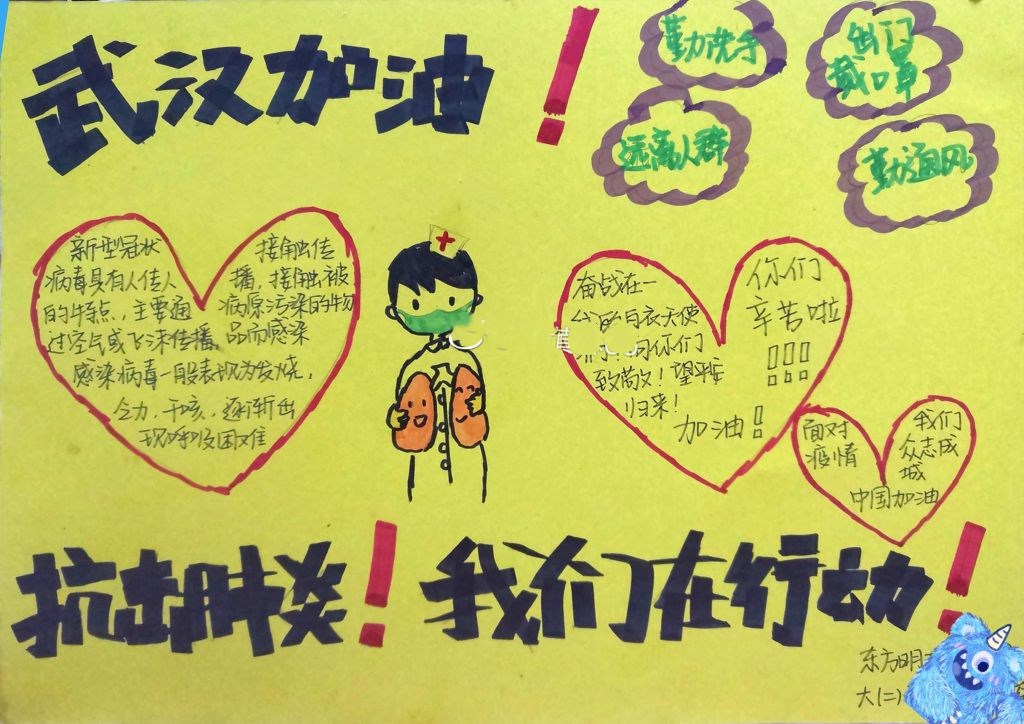 武汉加油！
勤洗手
出门
戴口罩
远离人群
勤通风
新型冠状
病毒具有人传人
的特点，主要通
过空气或飞沫传播，
接触传
播，接触被
病原污染的物
品而感染
感染病毒一般表现为发烧，
乏力，干咳，逐渐出
现呼吸困难
奋战在一
白衣天使
向你们
致敬！望平安
归来！
你们
辛苦啦
！！！
加油！
面对
疫情
我们
众志成
城
中国加油
抗击肺炎！我们在行动！
东方明
大(二)